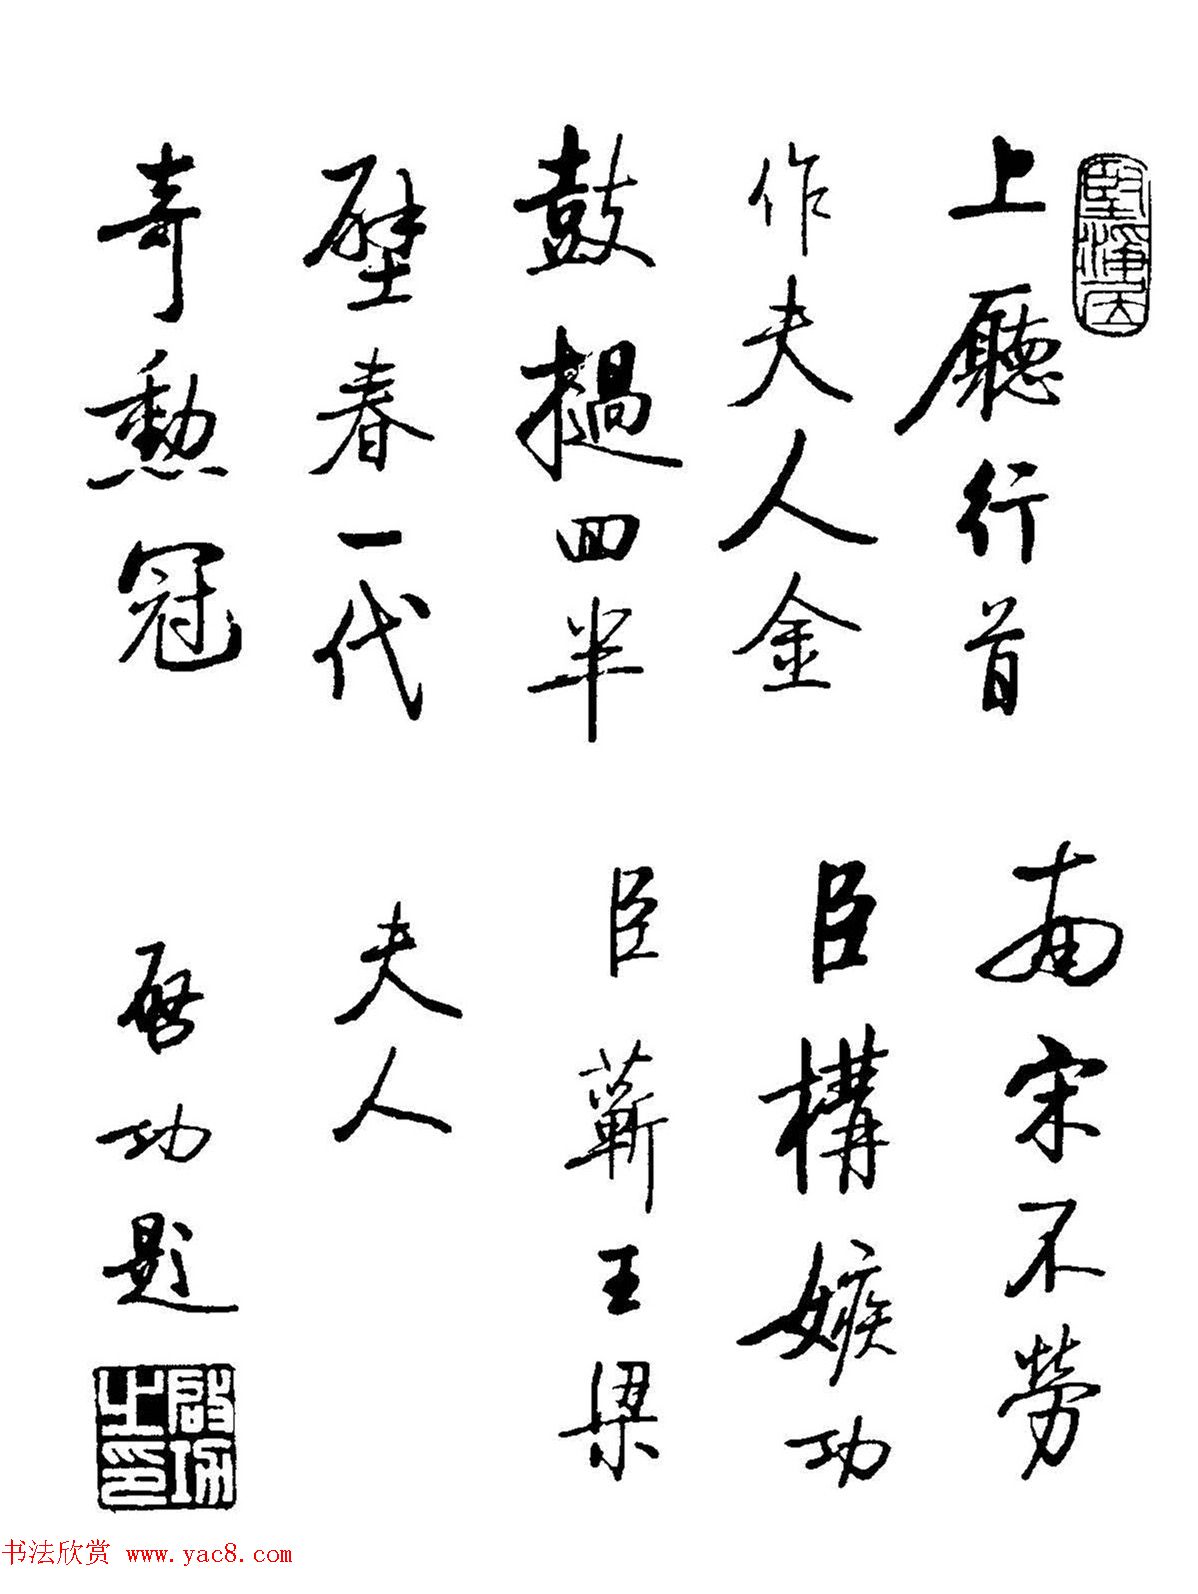 堅淨居
上廳行首
作夫人金
鼓撾回半
壁春一代
奇勳冠
南宋不勞
臣構嫉功
臣蘄王梁
夫人
啓功題
啟功之印
书法欣赏 www.yac8.com